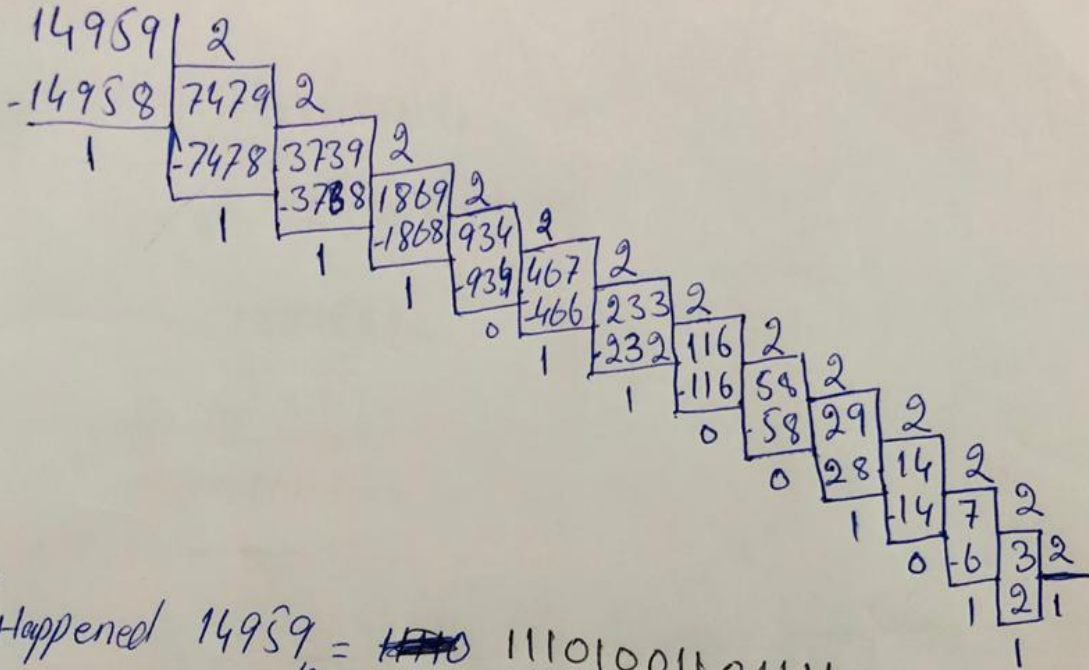 14959 2
-14958 7479 2
1 -7478 3739 2
-3738 1869 2
1 -1868 934 2
1 -934 467 2
1 0 -466 233 2
1 -232 116 2
1 -116 58 2
0 -58 29 2
0 28 14 2
1 -14 7 2
0 -6 3 2
1 2 1
1
Happened 14959 = 11101001101111